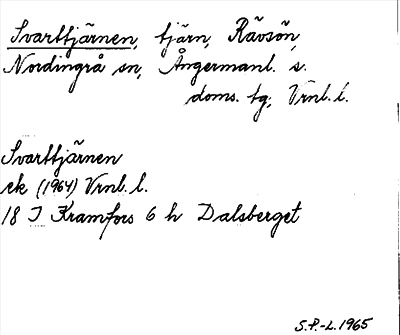 Svarttjärnen, tjärn, Rävsön,
Nordingrå sn, Ångermanl. s.
doms. tg, Vrnl. l.
Svarttjärnen
ek (1964) Vrnl. l.
18 I Kramfors 6 h Dalsberget
S.P.-L. 1965